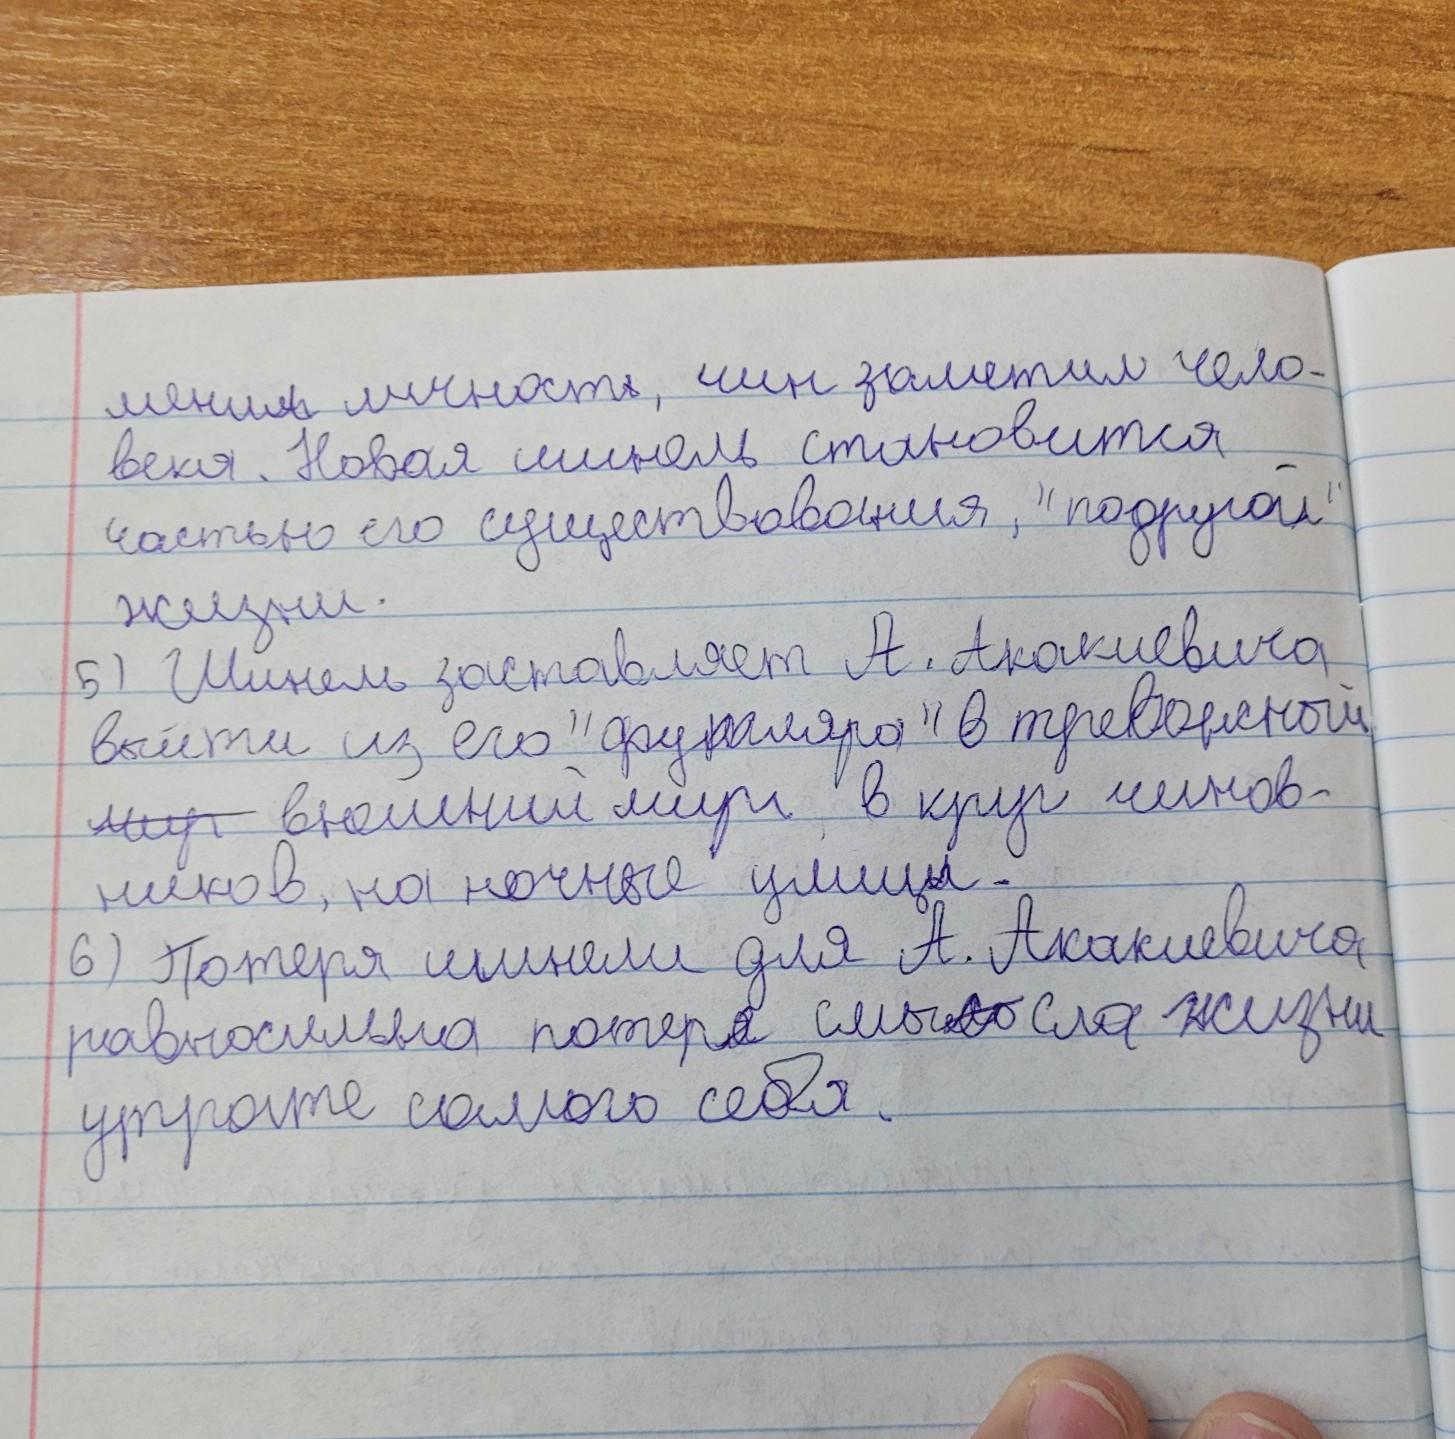 менил личность, чин заметил чело-
века. Новая шинель становится
частью его существования, "подругой"
жизни.
5) Шинель заставляет А. Акакиевича
выйти из его "футляра" в тревожный
мир внешний мир в круг чинов-
ников, на ночные улицы.
6) Потеря шинели для А. Акакиевича
равносильна потере смысла жизни
утрате самого себя.